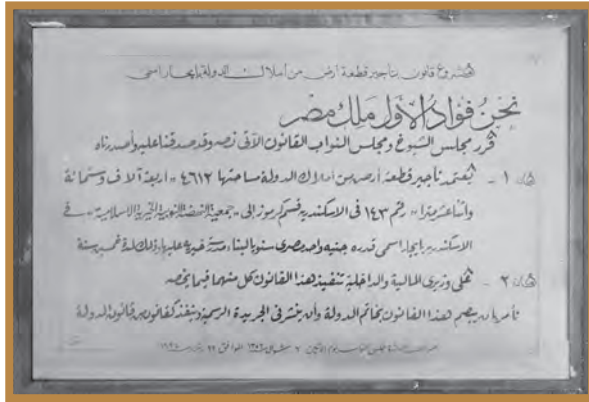 مشروع قانون بتأجير قطعة أرض من أملاك الدولة بإيجار اسمى
نحن فؤاد الأول ملك مصر
قرر مجلس الشيوخ ومجلس النواب القانون الآتى نصه وقد صدقنا عليه وأصدرناه
مادة ١ - يعتمد تأجير قطعة أرض من أملاك الدولة مساحتها ٤٦١٢ " أربعة آلاف وستمائة
واثنا عشر مترا " رقم ١٤٣ فى الاسكندرية قسم كرموز إلى " جمعية النهضة النوبية الخيرية الاسلامية " فى
الاسكندرية بايجار اسمى قدره جنيه واحد مصرى سنويا لبناء مدرسة خيرية عليها وذلك لمدة خمسين سنة
مادة ٢ - على وزيرى المالية والداخلية تنفيذ هذا القانون كل منهما فيما يخصه
نأمر بأن يبصم هذا القانون بخاتم الدولة وأن ينشر فى الجريدة الرسمية وينفذ كقانون من قوانين الدولة
مجلس النواب يوم الاثنين ٧ الموافق